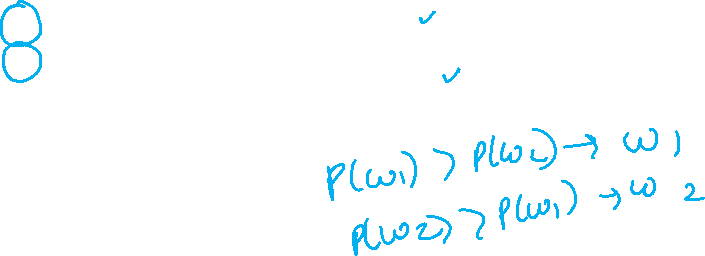 P(ω1) > P(ω2) → ω1
P(ω2) > P(ω1) → ω2